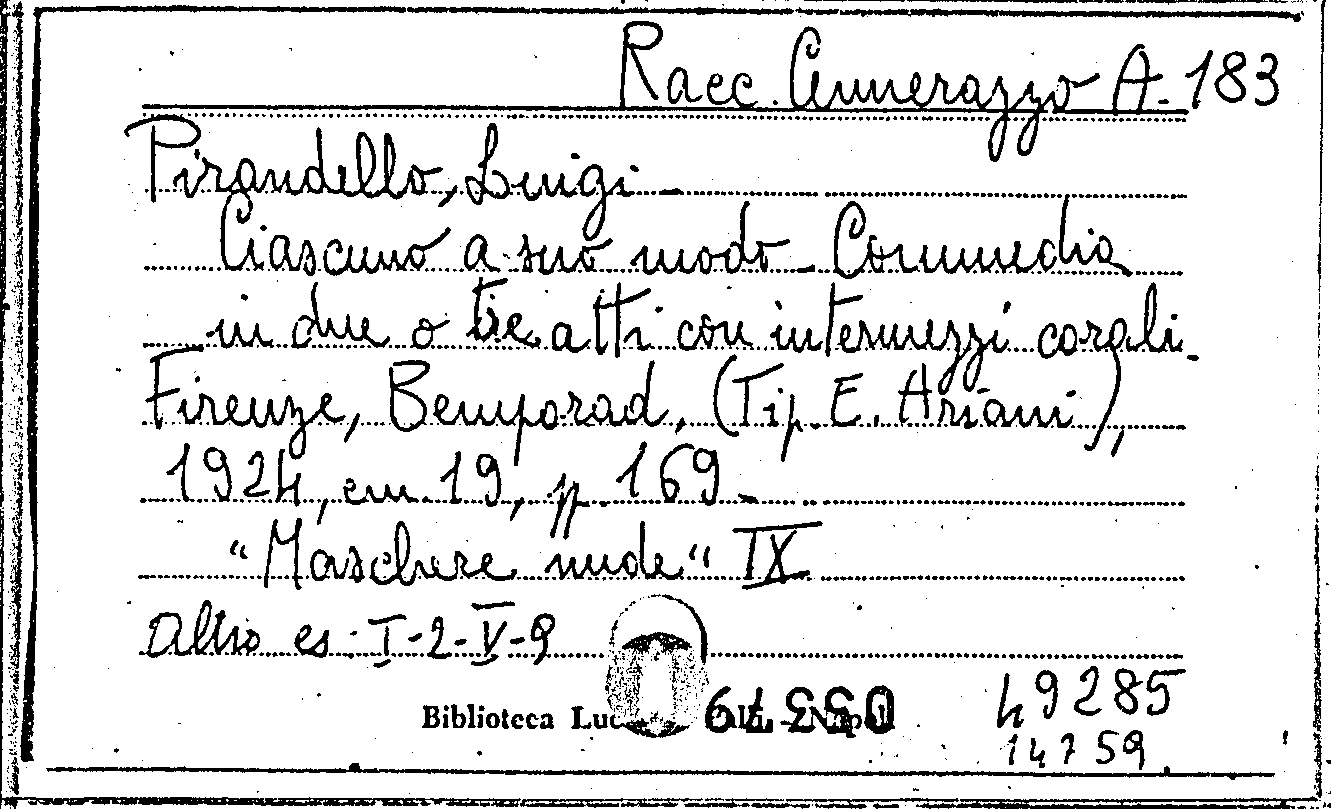 Racc. Cimmerazzo A. 183
Pirandello, Luigi -
Ciascuno a suo modo - Commedia
in due o tre atti con intermezzi corali.
Firenze, Bemporad, (Tip. E. Ariani),
1924, cm. 19, pp. 169 -
"Maschere nude" IX
Altro es: I-2-V-9
Biblioteca Napoli
053379
49285
14759